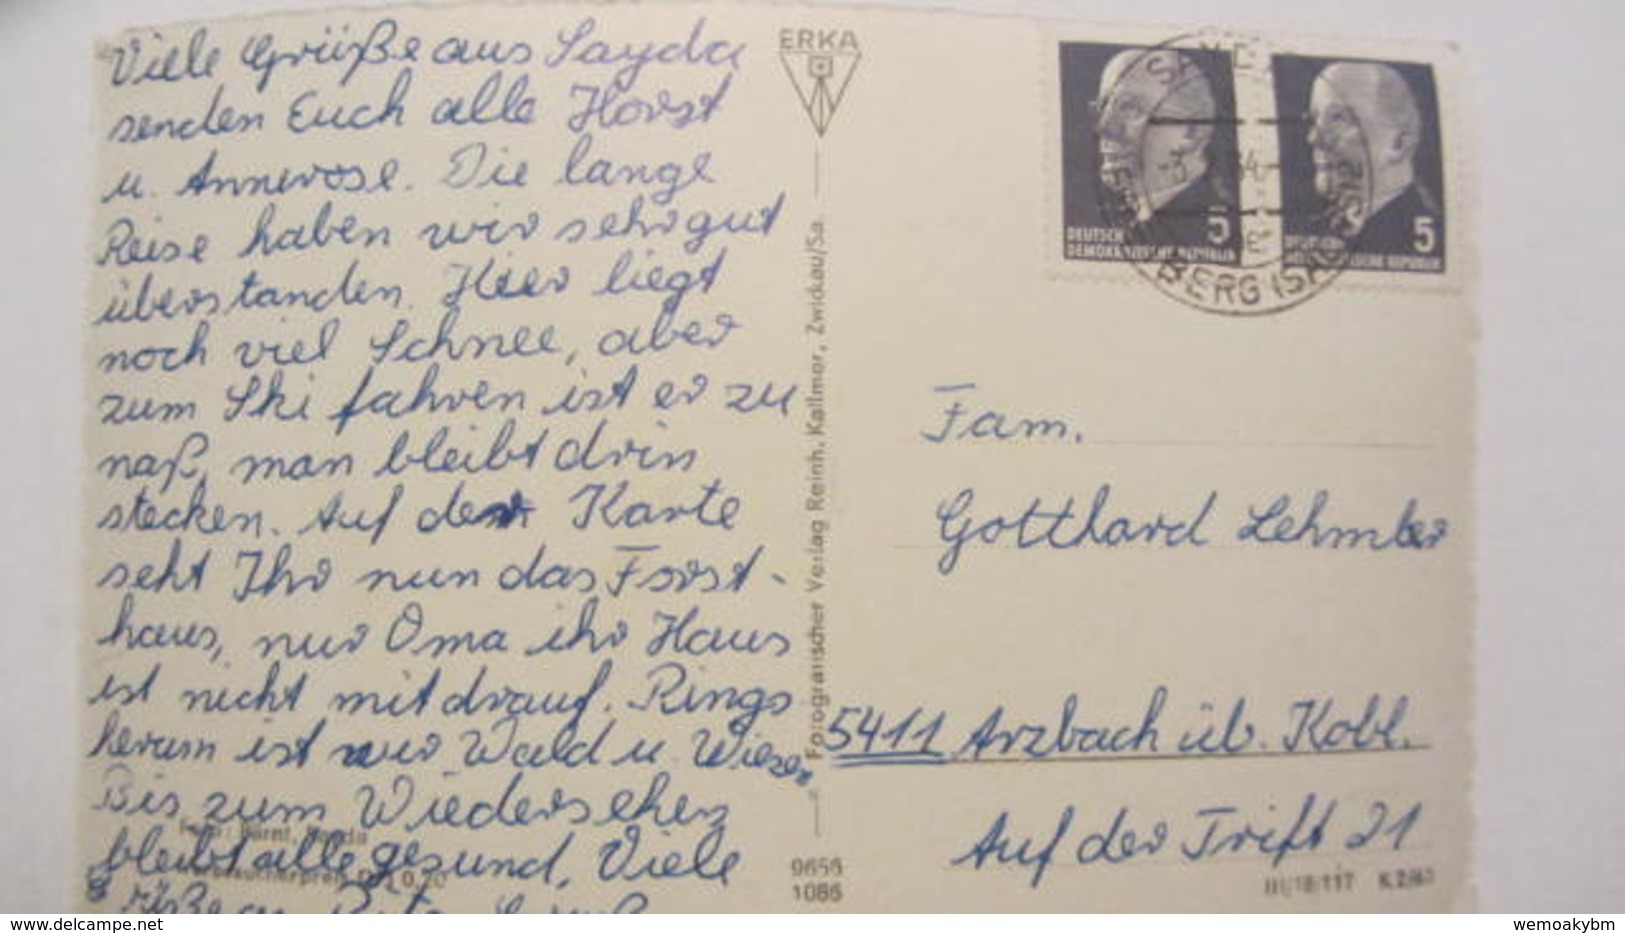 Viele Grüße aus Sayda
senden Euch alle Horst
u. Annerose. Die lange
Reise haben wir sehr gut
überstanden. Hier liegt
noch viel Schnee, aber
zum Ski fahren ist er zu
naß, man bleibt drin
stecken. Auf der Karte
seht Ihr nun das Forst-
haus, nur Oma ihr Haus
ist nicht mit drauf. Rings
herum ist nur Wald u. Wiesen
Bis zum Wiedersehen
bleibt alle gesund, Viele
Grüße an
ERKA
Fotografischer Verlag Reinh. Kallmer, Zwickau/Sa.
9656
1086
DEUTSCHE
DEMOKRATISCHE REPUBLIK
5
DEUTSCHE
DEMOKRATISCHE REPUBLIK
5
SAYDA
BERG (SACHS)
Fam.
Gotthard Lehmler
5411 Arzbach üb. Kobl.
Auf der Trift 21
III/18/117 K 2/63
wemoakybm